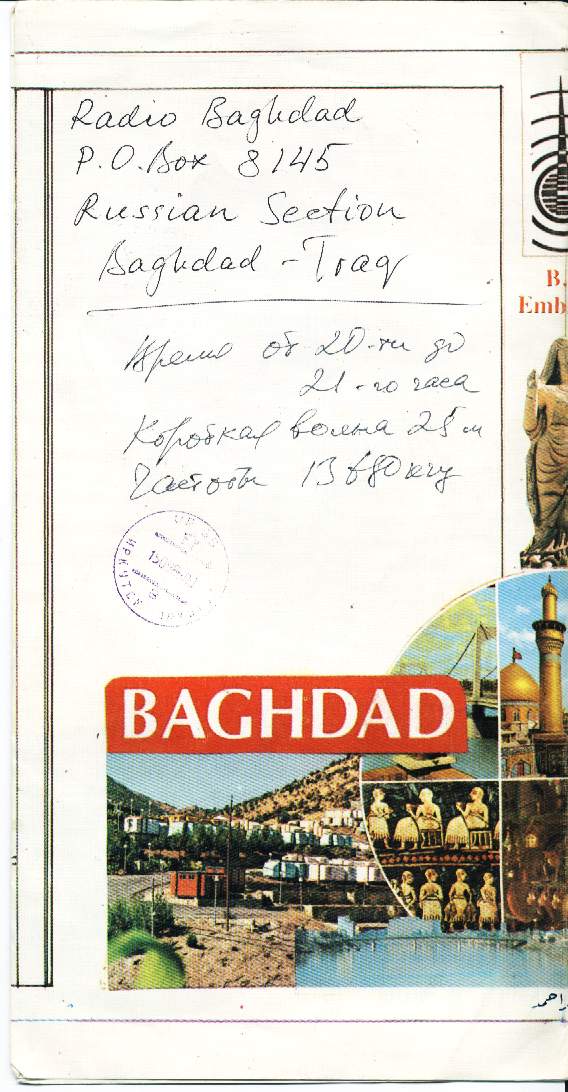 Radio Baghdad
P.O.Box 8145
Russian Section
Baghdad - Iraq
B.
Emb
Время от 20-ти до
21-го часа
Короткая волна 25 м
Частота
ИРКУТСК
BAGHDAD